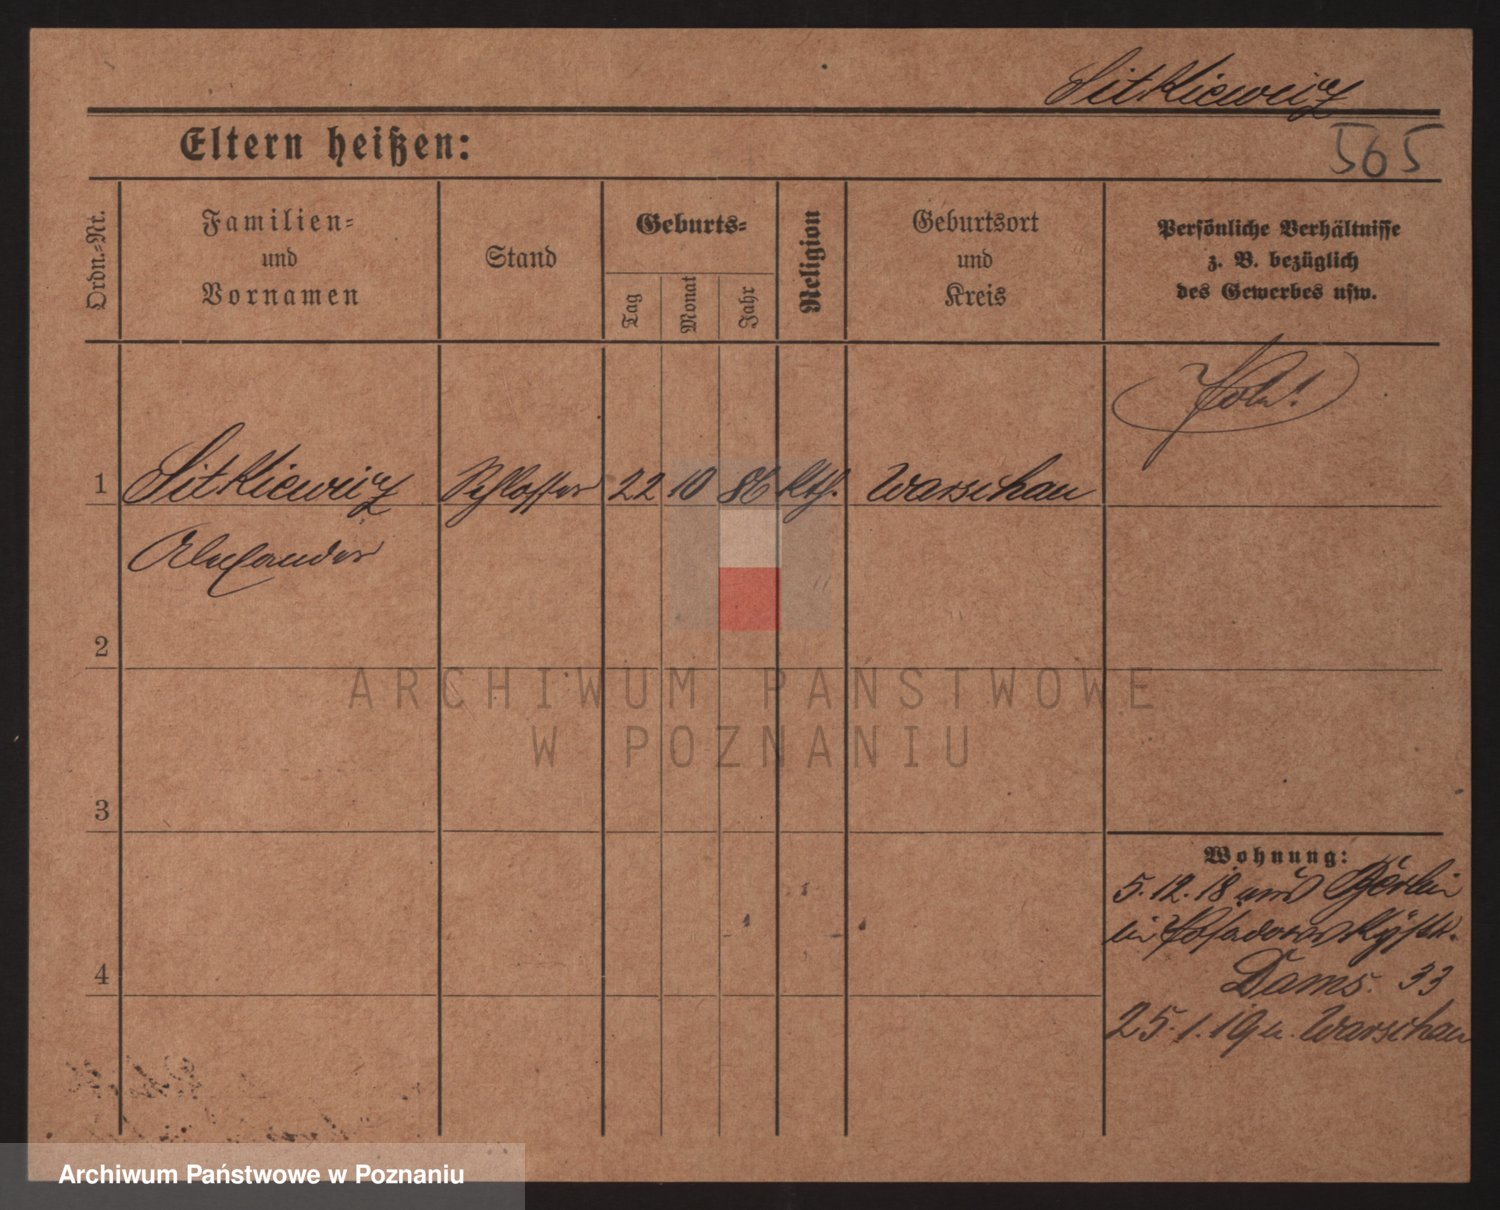 Sitkiewicz
Eltern heißen:
565
Ordn.-Nr.
Familien-
und
Vornamen
Stand
Geburts-
Tag
Monat
Jahr
Religion
Geburtsort
und
Kreis
Persönliche Verhältnisse
z. B. bezüglich
des Gewerbes usw.
Pole!
1
Sitkiewicz
Schlosser
22
10
86
kth.
Warschau
Alexander
2
ARCHIWUM PAŃSTWOWE
W POZNANIU
3
Wohnung:
5.12.18 aus Berlin
bei
4
33
25.1.19 n. Warschau
Archiwum Państwowe w Poznaniu